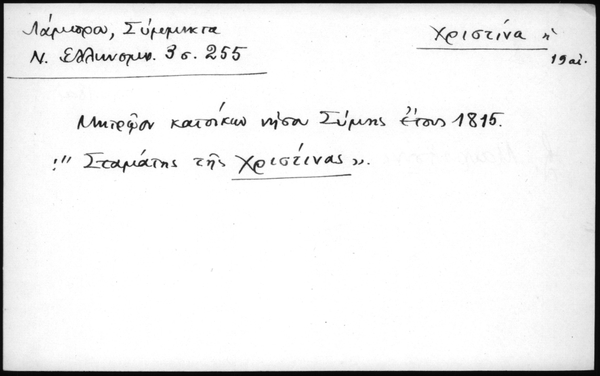 Λάμπρου, Σύμμικτα
Ν. Ελληνομν. 3 σ. 255
Χριστίνα ἡ
19 αἰ.
Μητρῷον κατοίκων νήσου Σύμης ἔτους 1815.
: " Σταμάτης τῆς Χριστίνας ».